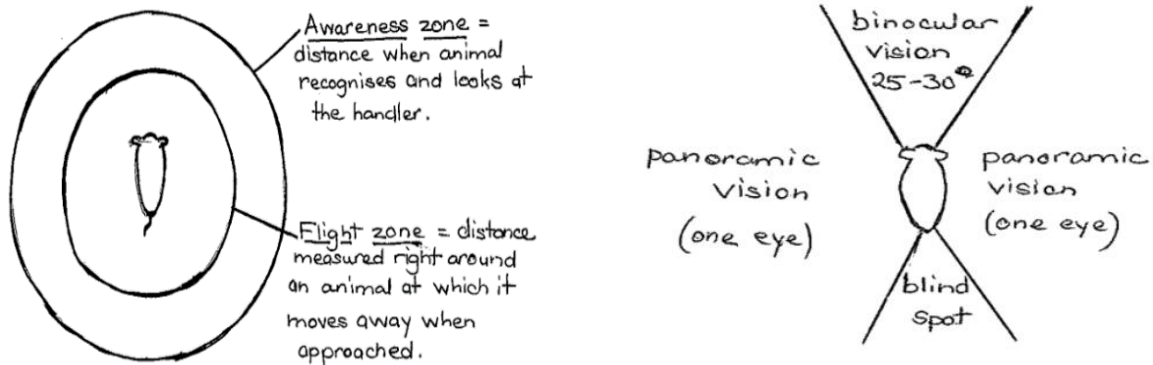 Awareness zone =
distance when animal
recognises and looks at
the handler.
Flight zone = distance
measured right around
an animal at which it
moves away when
approached.
binocular
vision
25-30°
panoramic
vision
(one eye)
panoramic
vision
(one eye)
blind
spot